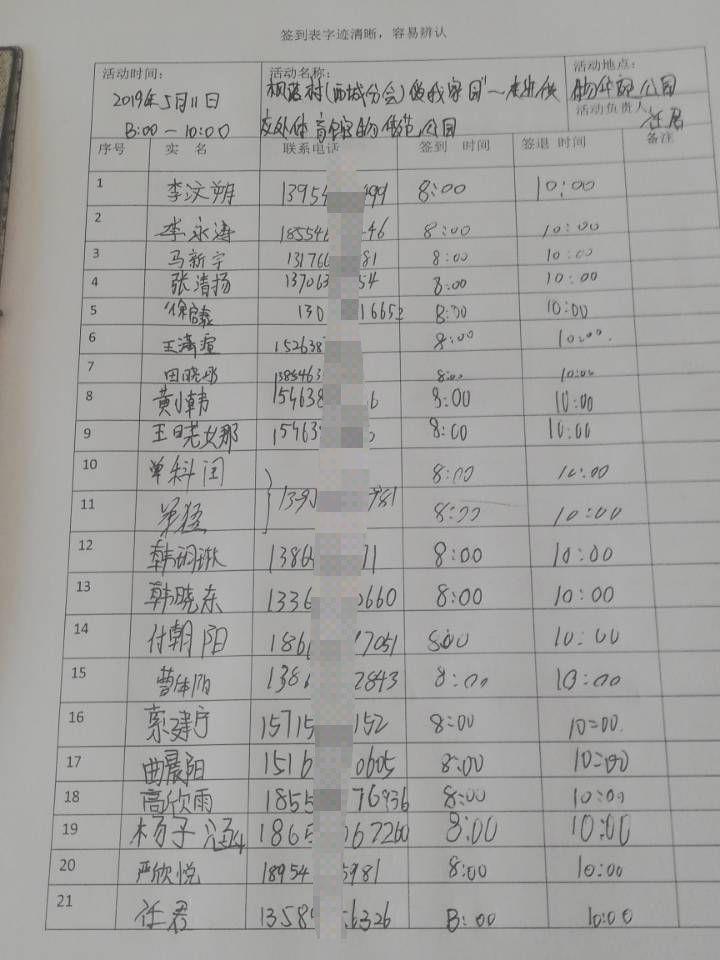 签到表字迹清晰，容易辨认
活动时间：
2019年5月11日
8:00 — 10:00
活动名称：
(西城分会)
活动地点：
公园
活动负责人：
任君
序号 实 名 联系电话 签到 时间 签退 时间 备注
1 李汶朔 13954 499 8:00 10:00
2 李永涛 185546 46 8:00 10:00
3 马新宇 131766 81 8:00 10:00
4 张清扬 137063 54 8:00 10:00
5 130 16652 8:00 10:00
6 152638 8:00 10:00.
7 田晓彤 1385463 8:00 10:00
8 黄小韩 154638 6 8:00 10:00
9 15463 8:00 10:00
10 单科闰 8:00 10:00
11 981 8:00 10:00
12 1386 71 8:00 10:00
13 韩晓东 1336 0660 8:00 10:00
14 付朝阳 1861 7051 8:00 10:00
15 138 2843 8:00 10:00
16 15715 152 8:00 10:00
17 曲晨阳 1516 0605 8:00 10:00
18 高欣雨 1855 76936 8:00 10:00
19 杨子涵 1865 67260 8:00 10:00
20 严欣悦 18954 5981 8:00 10:00
21 任君 1358 56326 8:00 10:00